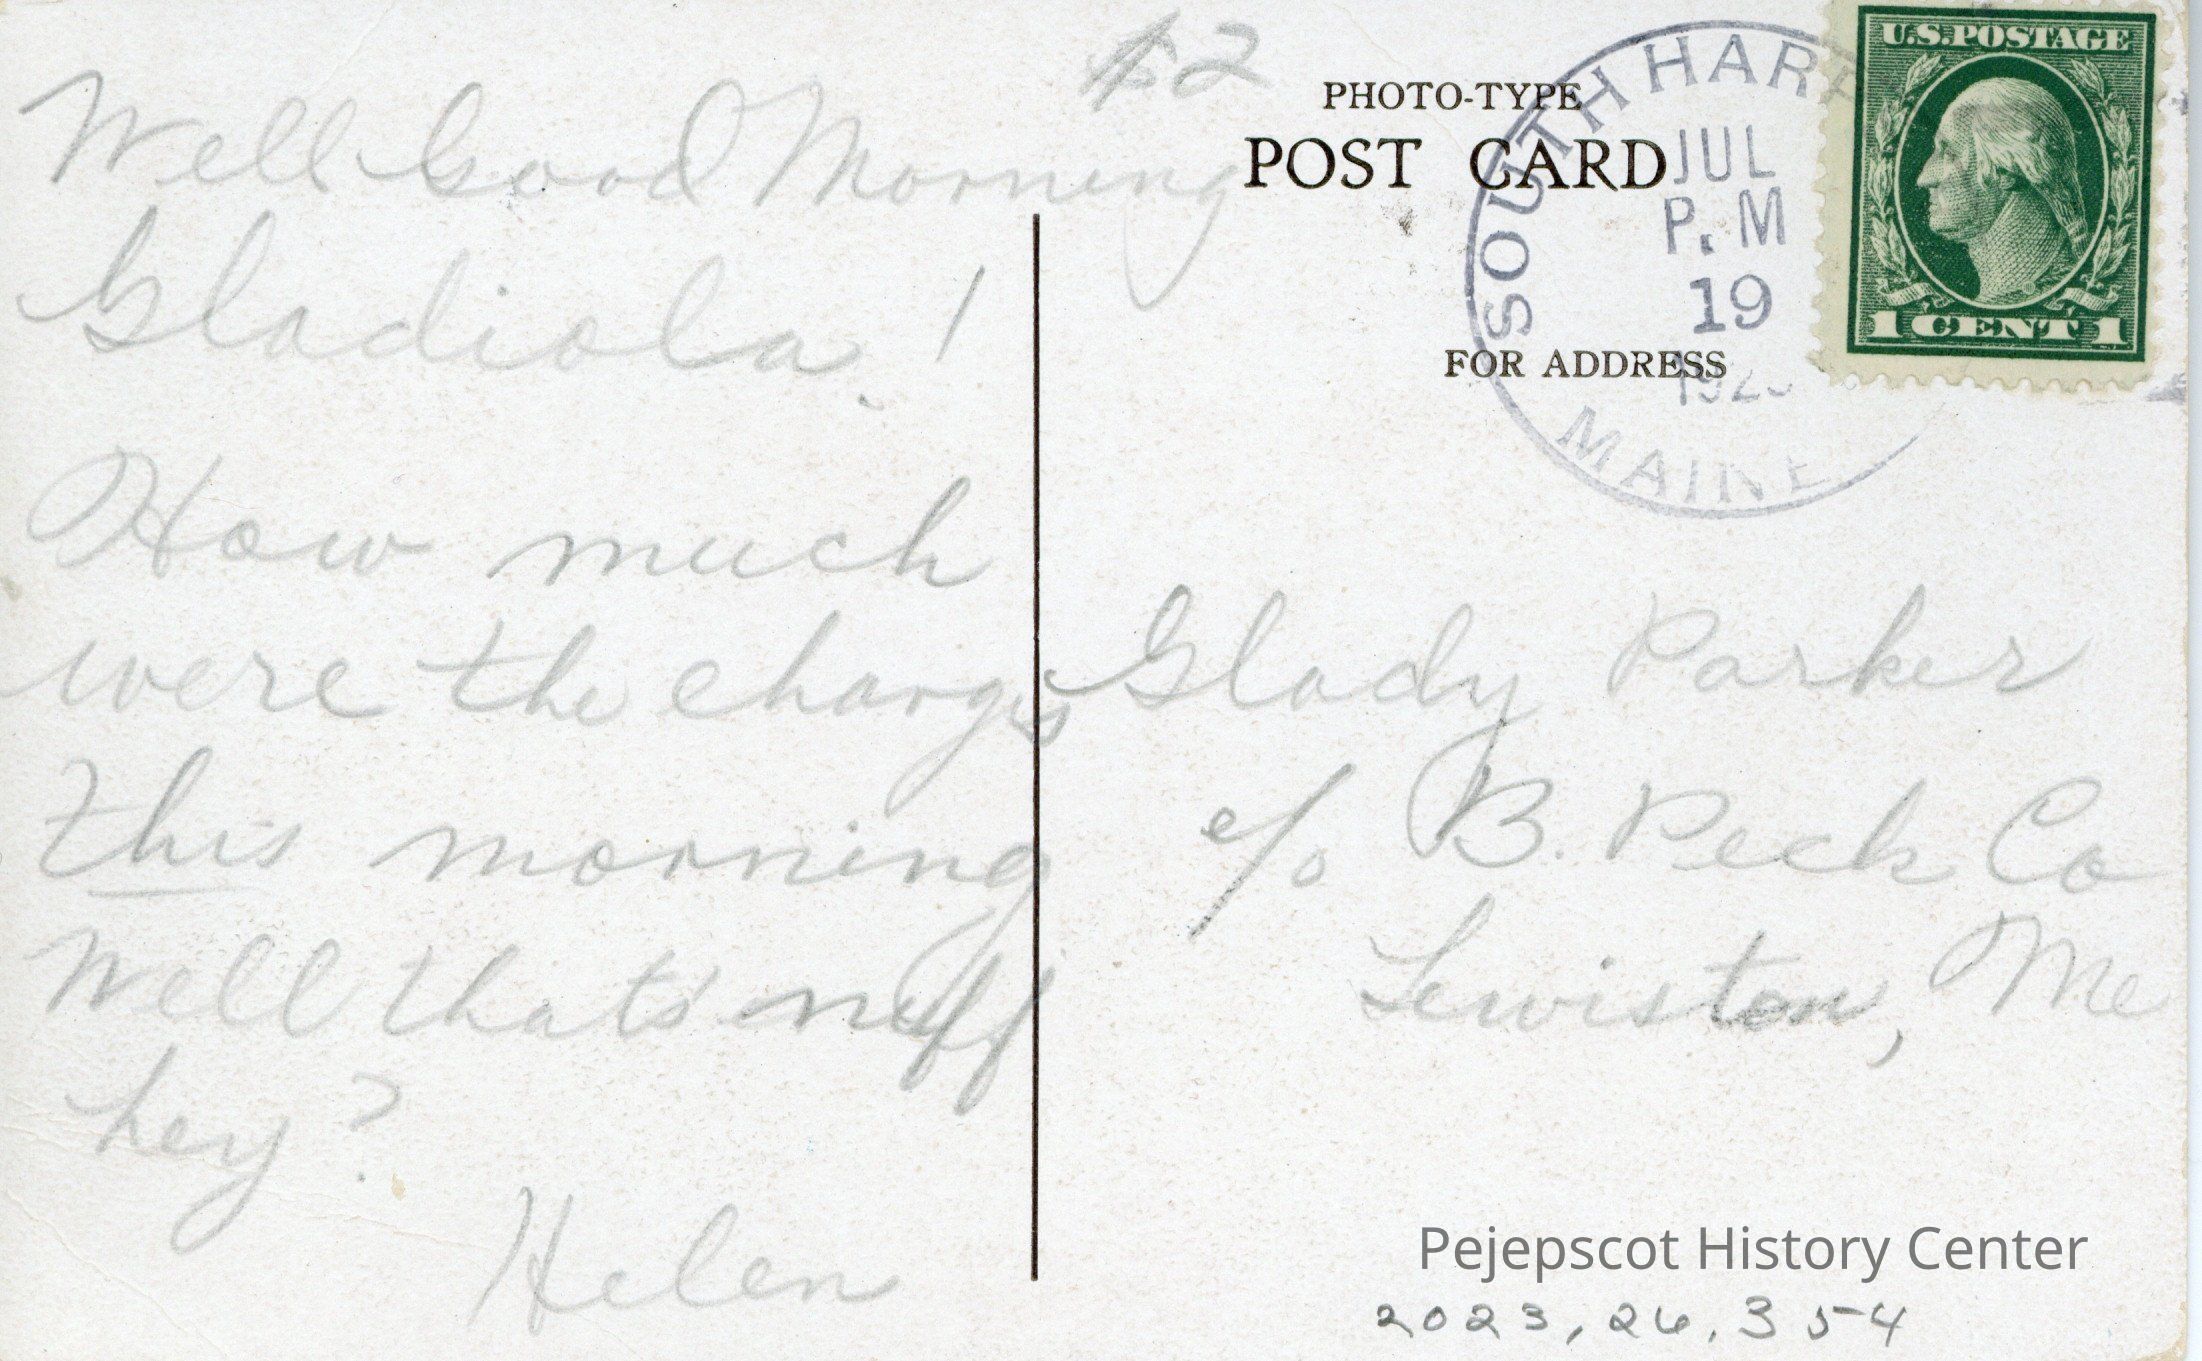 Well Good Morning
Gladiola!
How much
were the charges
this morning
Well that's nuff
hey?
Helen
PHOTO-TYPE
POST CARD
FOR ADDRESS
SOUTH HARP
JUL
P.M
19
MAINE
U.S. POSTAGE
1 CENT 1
Glady Parker
c/o B. Peck Co
Lewiston, Me
Pejepscot History Center
2023.26.354